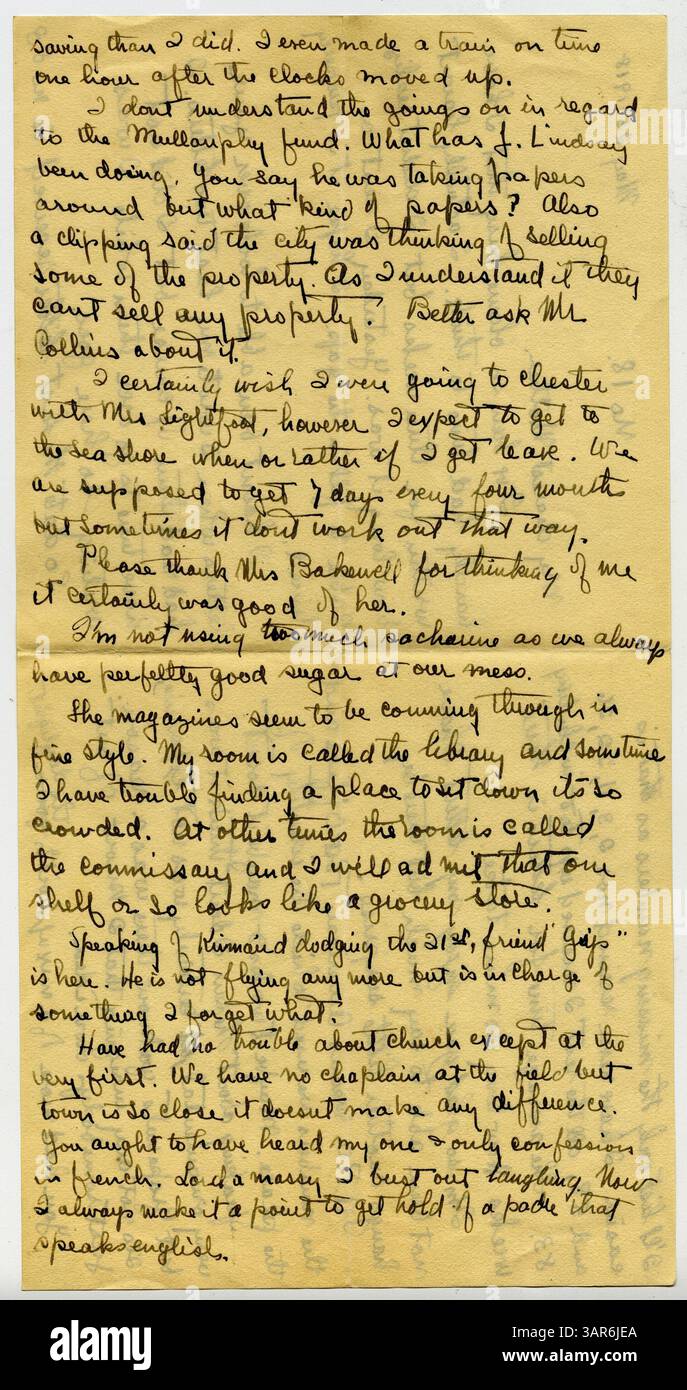 saving than I did. I even made a train on time
one hour after the clocks moved up.
I dont understand the goings on in regard
to the Mullanphy fund. What has J. Lindsay
been doing. You say he was taking papers
around but what kind of papers? Also
a clipping said the city was thinking of selling
some of the property. As I understand it they
cant sell any property. Better ask Mr
Collins about it.
I certainly wish I were going to Chester
with Mrs Lightfoot, however I expect to get to
the sea shore when or rather if I get leave. We
are supposed to get 7 days every four months
but sometimes it dont work out that way.
Please thank Mrs Bakewell for thinking of me
it certainly was good of her.
I'm not using too much sacharine as we always
have perfeltly good sugar at our mess.
The magazines seem to be comming through in
fine style. My room is called the library and sometime
I have trouble finding a place to sit down its so
crowded. At other times the room is called
the commissary and I will admit that one
shelf or so looks like a grocery store.
Speaking of Kinnaird dodging the 21st, friend "Grip"
is here. He is not flying any more but is in charge of
something I forget what.
Have had no trouble about church except at the
very first. We have no chaplain at the field but
town is so close it doesnt make any difference.
You aught to have heard my one & only confession
in french. Lord a massy I bust out laughing. Now
I always make it a point to get hold of a padre that
speaks english.
alamy
Image ID: 3AR6JEA
www.alamy.com